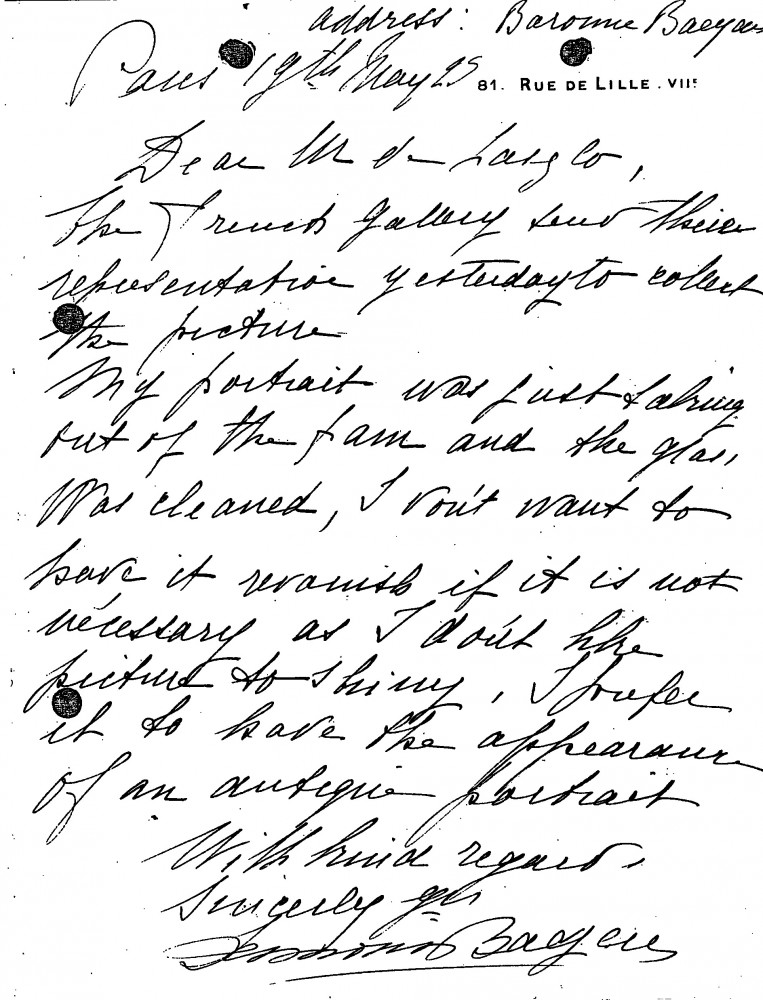 address: Baronne Baeyens
Paris 19th May 25
81. RUE DE LILLE. VIIE
Dear Mr de Laszlo,
the French Gallery send their
representative yesterday to collect
the picture
My portrait was just taking
out of the fram and the glass
was cleaned, I don't want to
have it revanish if it is not
nécessary as I don't like
picture to shiny, I prefer
it to have the appearance
of an antique portrait
With kind regards
Sincerly yrs
Baeyens